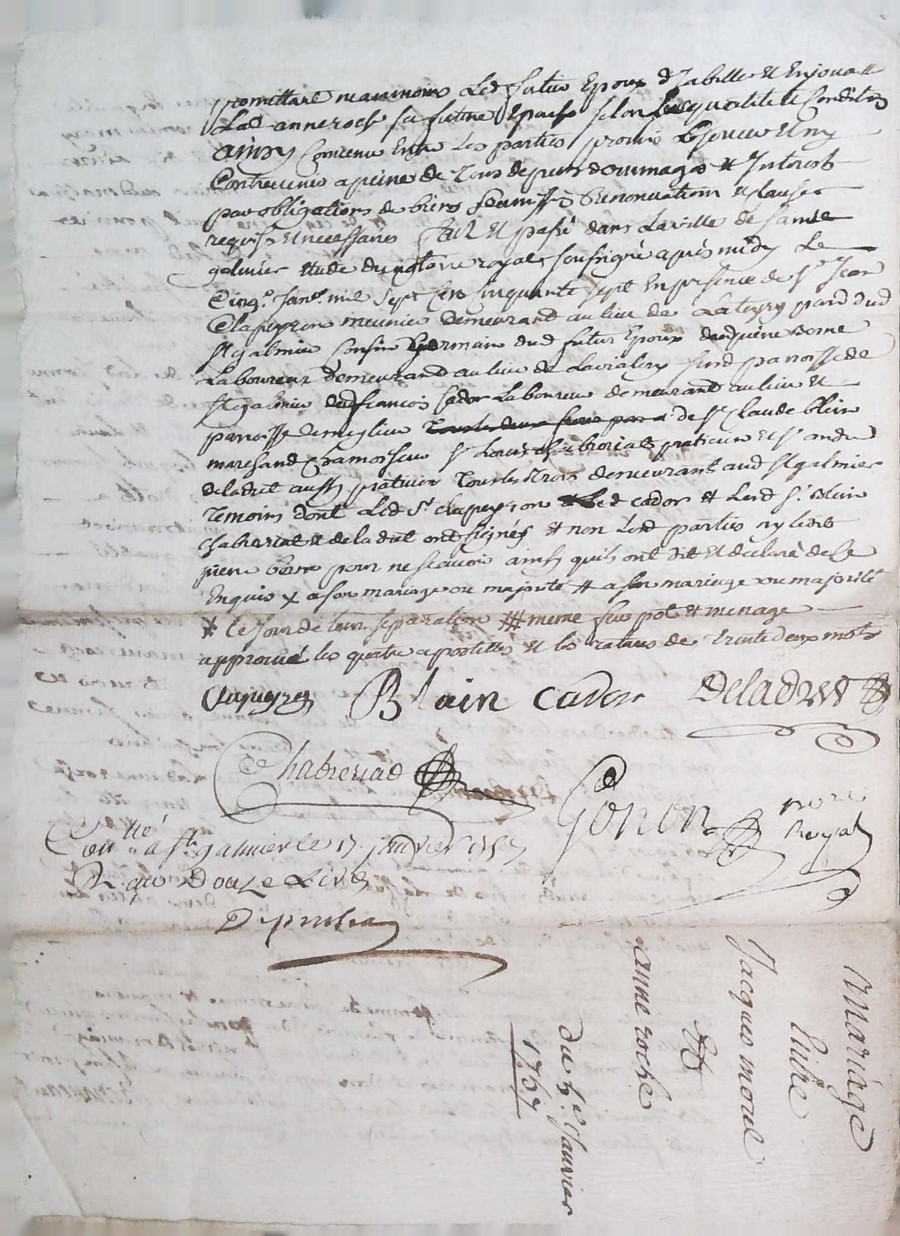 promittare maximons Led futur Epoux d'habiller et Enjoualler
Lad anne roche sa future Epouse selon sa qualité et Condition
ainsy Convenu Entre Les parties promis Observer Et ny
Contrevenir a peine de Tous depens dommages et Interests
par obligations de biens soumis.ns Renonciations et clauses
requises et necessaires fait et passé dans La ville de sainct
galmier Etude du notaire royal soussigné après midy Le
Cinq.e Janv.r mil sept cens cinquante sept En presence de s.r Jean
Clapeyron meunier demeurant au lieu de La paroisse dud
st galmier Cousin germain dud futur Epoux de pierre Bome
Laboureur demeurant au lieu de Lavialery susd paroisse de
st galmier de françois Cador Laboureur demeurant au lieu et
paroisse de de s.r Claude blein
marchand Chamoiseur s.r Louis Chabreriat praticien et s.r andré
deladret aussy praticien Tous les trois demeurant aud st galmier
Temoins dont Led s.r clapeyron Led cador et Lesd s.rs Blein
Chabreriat et deladret ont signés et non Lesd parties ny Ledit
pierre Bome pour ne sçavoir ainsy qu'ils ont dit et declaré de Ce
Enquis x a son mariage ou majorité # a son mariage ou majorité
* Le jour de leur separation ## meme feu pot et menage
approuvé les quatre apostilles et les ratures de trente deux mots
Clapeyron Blain cador Deladret
Chabreriad
Gonon no.re
Royal
Con.llé a st galmier le 17 janvier 1757
R. que Douze Livres
Mariage
Entre
Jacques morel
Et
anne roche
du 5.e Janvier
1757